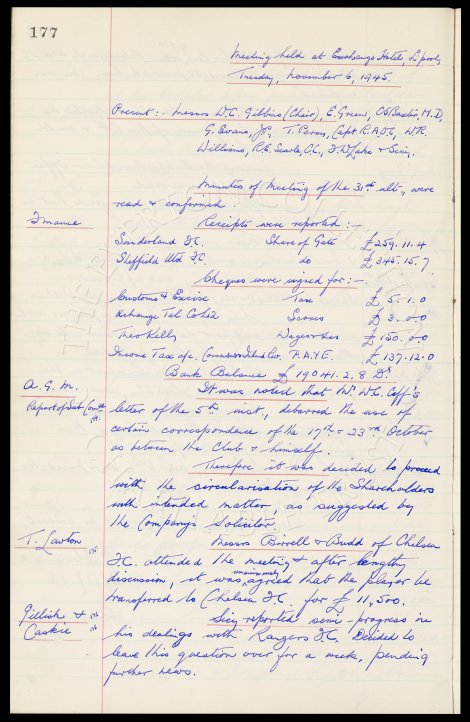 177
Meeting held at Exchange Hotel, L'pool,
Tuesday, November 6, 1945.
Present:- Messrs W.C. Gibbins (Chair), E. Green, M.D,
G. Evans, J.P., T. Percy, Capt. R.A.D.C, W.R.
Williams, R.E. Searle, C.C., & Secy.
Minutes of Meeting of the 31st ult., were
read & confirmed.
Finance
Receipts were reported:-
Sunderland FC. Share of Gate £259.11.4
Sheffield Utd FC. do £345.15.7
Cheques were signed for:-
Customs & Excise Tax £5.1.0
Xchange Tel Scores £3.0.0
Theo Kelly Wages £150.0.0
Income Tax a/c. P.A.Y.E. £137.12.0
Bank Balance £19041.2.8 Dr
A.G.M.
Report of Sub Comtee
It was noted that Mr. W.C. Cuff's
letter of the 5th inst., debarred the use of
certain correspondence of the 17th & 23rd October
as between the Club & himself.
Therefore it was decided to proceed
with the circularisation of the Shareholders
with intended matter, as suggested by
the Company's Solicitor.
T. Lawton
Messrs Birrell & Budd of Chelsea
FC. attended the meeting & after lengthy
discussion, it was unanimously agreed that the player be
transferred to Chelsea FC. for £11,500.
Gillick &
Caskie
Secy reported semi-progress in
his dealings with Rangers FC. Decided to
leave this question over for a week, pending
further news.